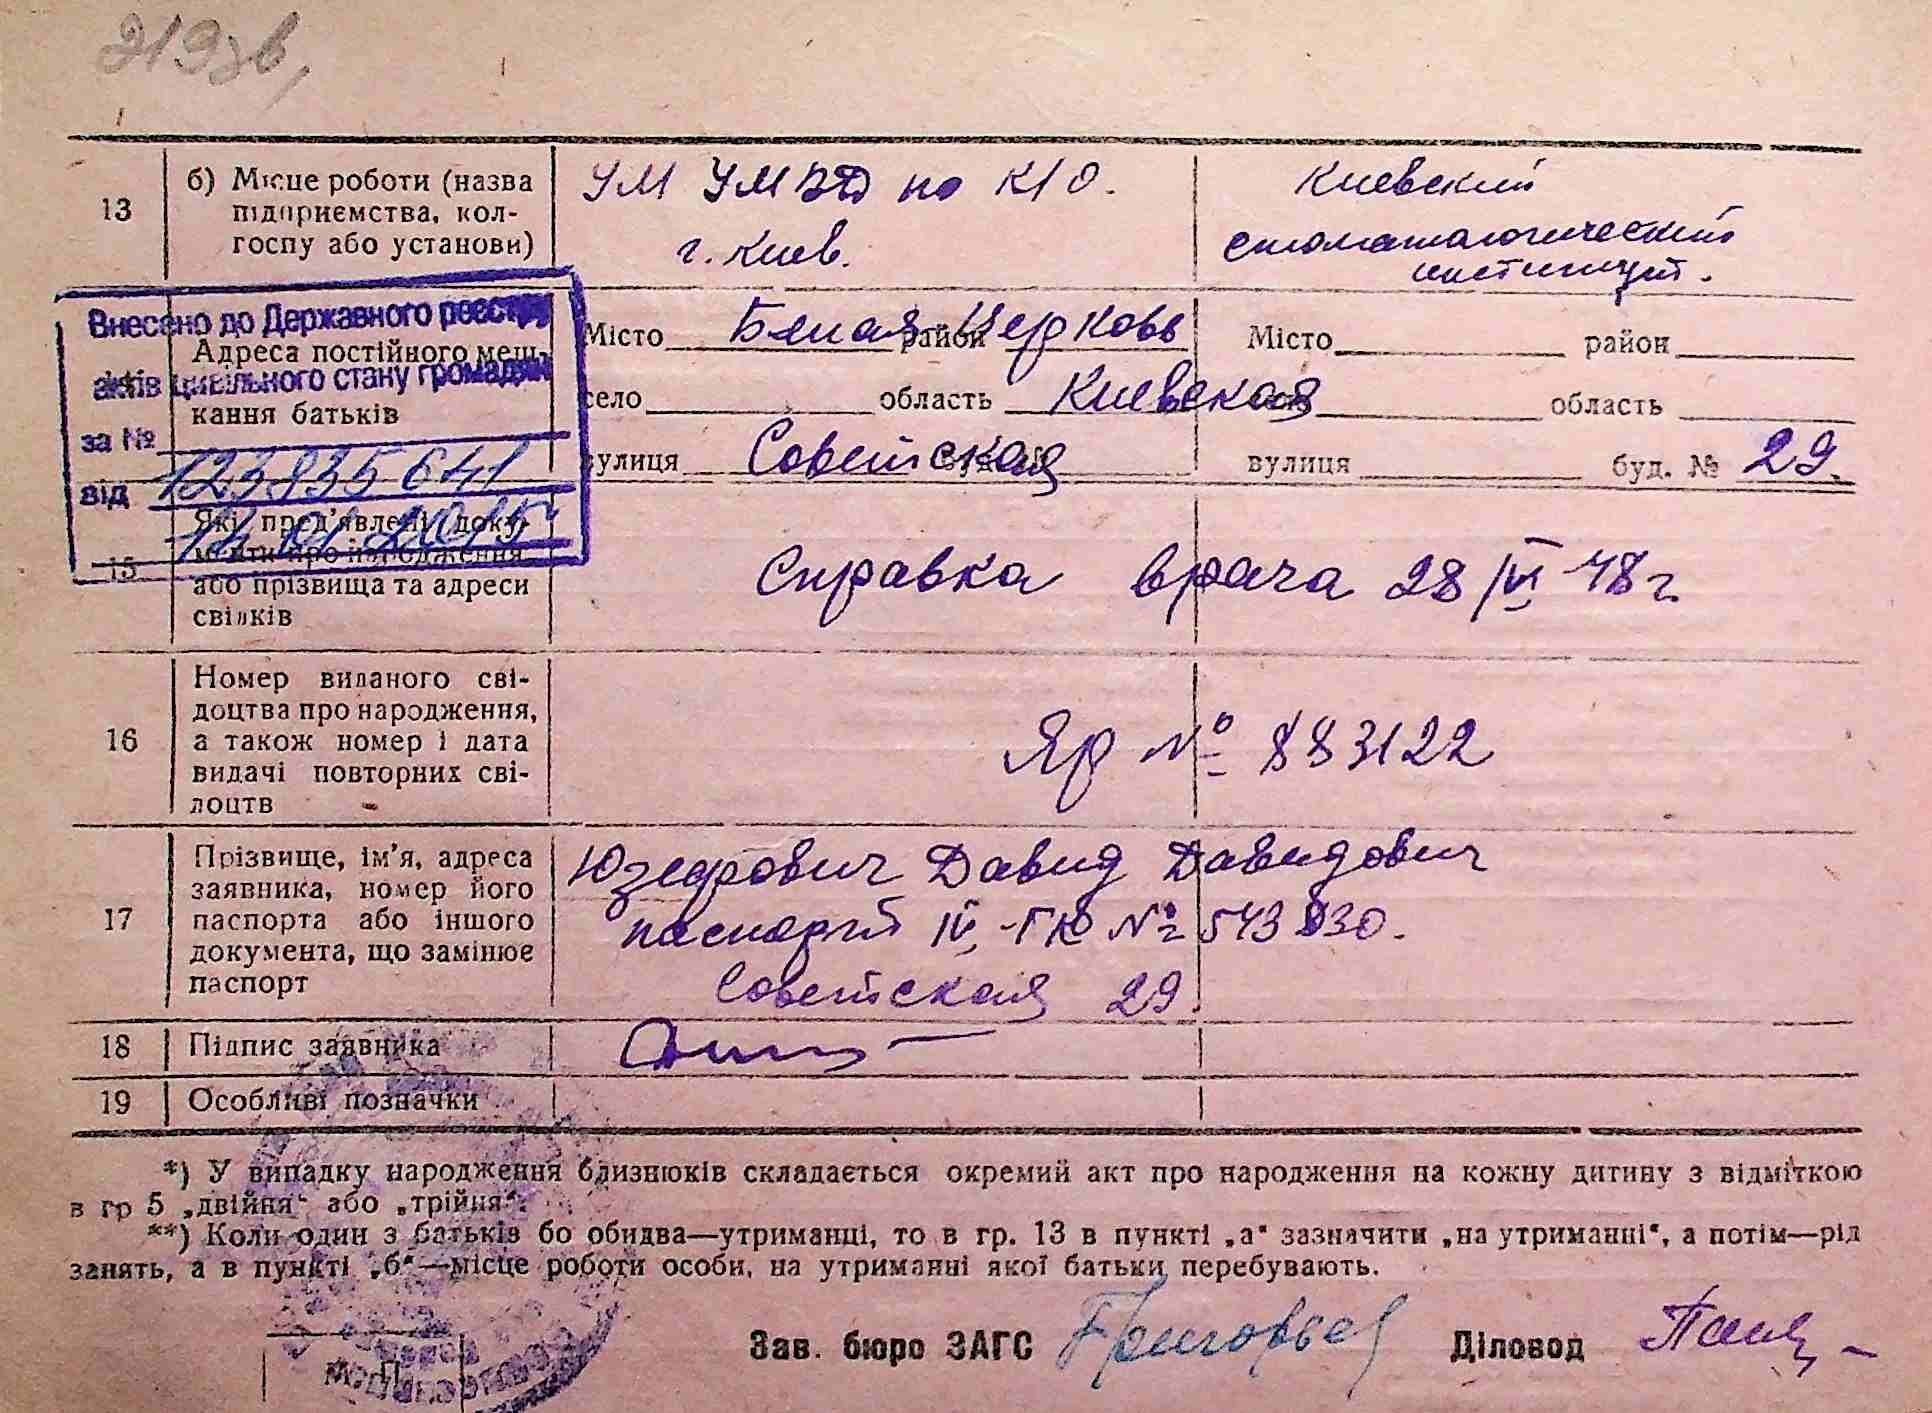 13
б) Місце роботи (назва
підприємства, кол-
госпу або установи)
УМ УМВД по К/О.
г. Киев.
Киевский
стоматологический
институт.
Внесено до Державного реєстру
актів цивільного стану громадян
за №
123835641
від
Адреса постійного меш-
кання батьків
Місто Белая Церковь район
село область Киевская
вулиця Советская
Місто район
село область
вулиця буд. № 29.
15
Які пред'явлені доку-
менти про народження
або прізвища та адреси
свідків
Справка врача 28/VI 48 г.
16
Номер виданого сві-
доцтва про народження,
а також номер і дата
видачі повторних сві-
доцтв
Яр № 883122
17
Прізвище, ім'я, адреса
заявника, номер його
паспорта або іншого
документа, що замінює
паспорт
Юзефович Давид Давидович
паспорт IV-ГЮ № 543830.
Советская 29.
18 Підпис заявника
19 Особливі позначки
*) У випадку народження близнюків складається окремий акт про народження на кожну дитину з відміткою
в гр 5 „двійня“ або „трійня“.
**) Коли один з батьків бо обидва—утриманці, то в гр. 13 в пункті „а“ зазначити „на утриманні“, а потім—рід
занять, а в пункті „б“—місце роботи особи, на утриманні якої батьки перебувають.
М. П.
Зав. бюро ЗАГС
Діловод